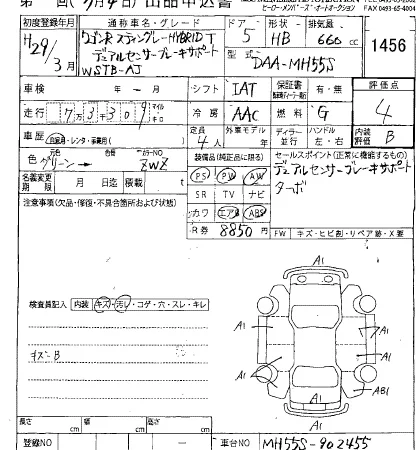 出品申込書
ヒーローメンバーズオートオークション
FAX 0493-65-4004
初度登録年月 通称車名・グレード ドア 形状 排気量
H29/3月 ワゴンR スティングレーHYBRID T 5 HB 660 cc 1456
デュアルセンサーブレーキサポート
WSTB-AJ 型式 DAA-MH55S
車検 年 月 シフト IAT 保証書 有・無 評価点
走行 7万3309 マイル キロ 冷房 AAC 燃料 G 4
車歴 自家用・レンタ・事業用 定員 4人 外車モデル 年 ディーラー 並行 ハンドル 左・右 内装 B
色 元色 グリーン→ 色替 カラーNO ZWZ 装備品(純正品に限る) セールスポイント(正常に機能するもの)
名義変更期限 月 日迄 積載 PS PW AW デュアルセンサーブレーキサポート
SR TV ナビ ターボ
注意事項(欠品・修復・不具合箇所および状態) カワ エアB ABS
R券 8850円 FW キズ・ヒビ割・リペア跡・X要
検査員記入 内装 キズ・汚レ・コゲ・穴・スレ・キレ
キズ-B
A1
A1
A1
A1
A1
A1
A1
A1
AB1
A1
長さ cm 幅 cm 高さ cm
登録NO 車台NO MH55S-902455